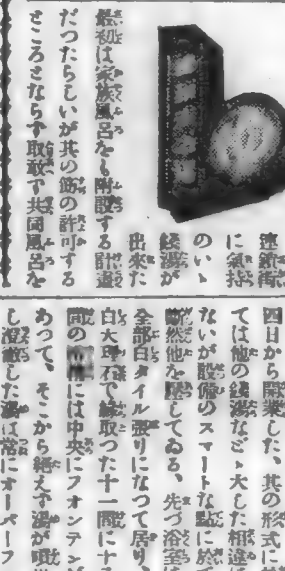 連鎖街
に氣持
のいゝ
錢湯が
出來た
最初は家族風呂をも附設する計畫
だつたらしいが其の筋の許可する
ところとならず取敢ず共同風呂を
四日から開業した、其の形式に於
ては他の錢湯などゝ大した相違は
ないが設備のスマートな點に於て
斷然他を壓してゐる、先づ浴室は
全部白タイル張りになつて居り、
白大理石で縁取つた十一間に
間の には中央にフオンテンが
あつて、そこから絶えず湯が噴出
し澄徹した湯は常にオーバーフ